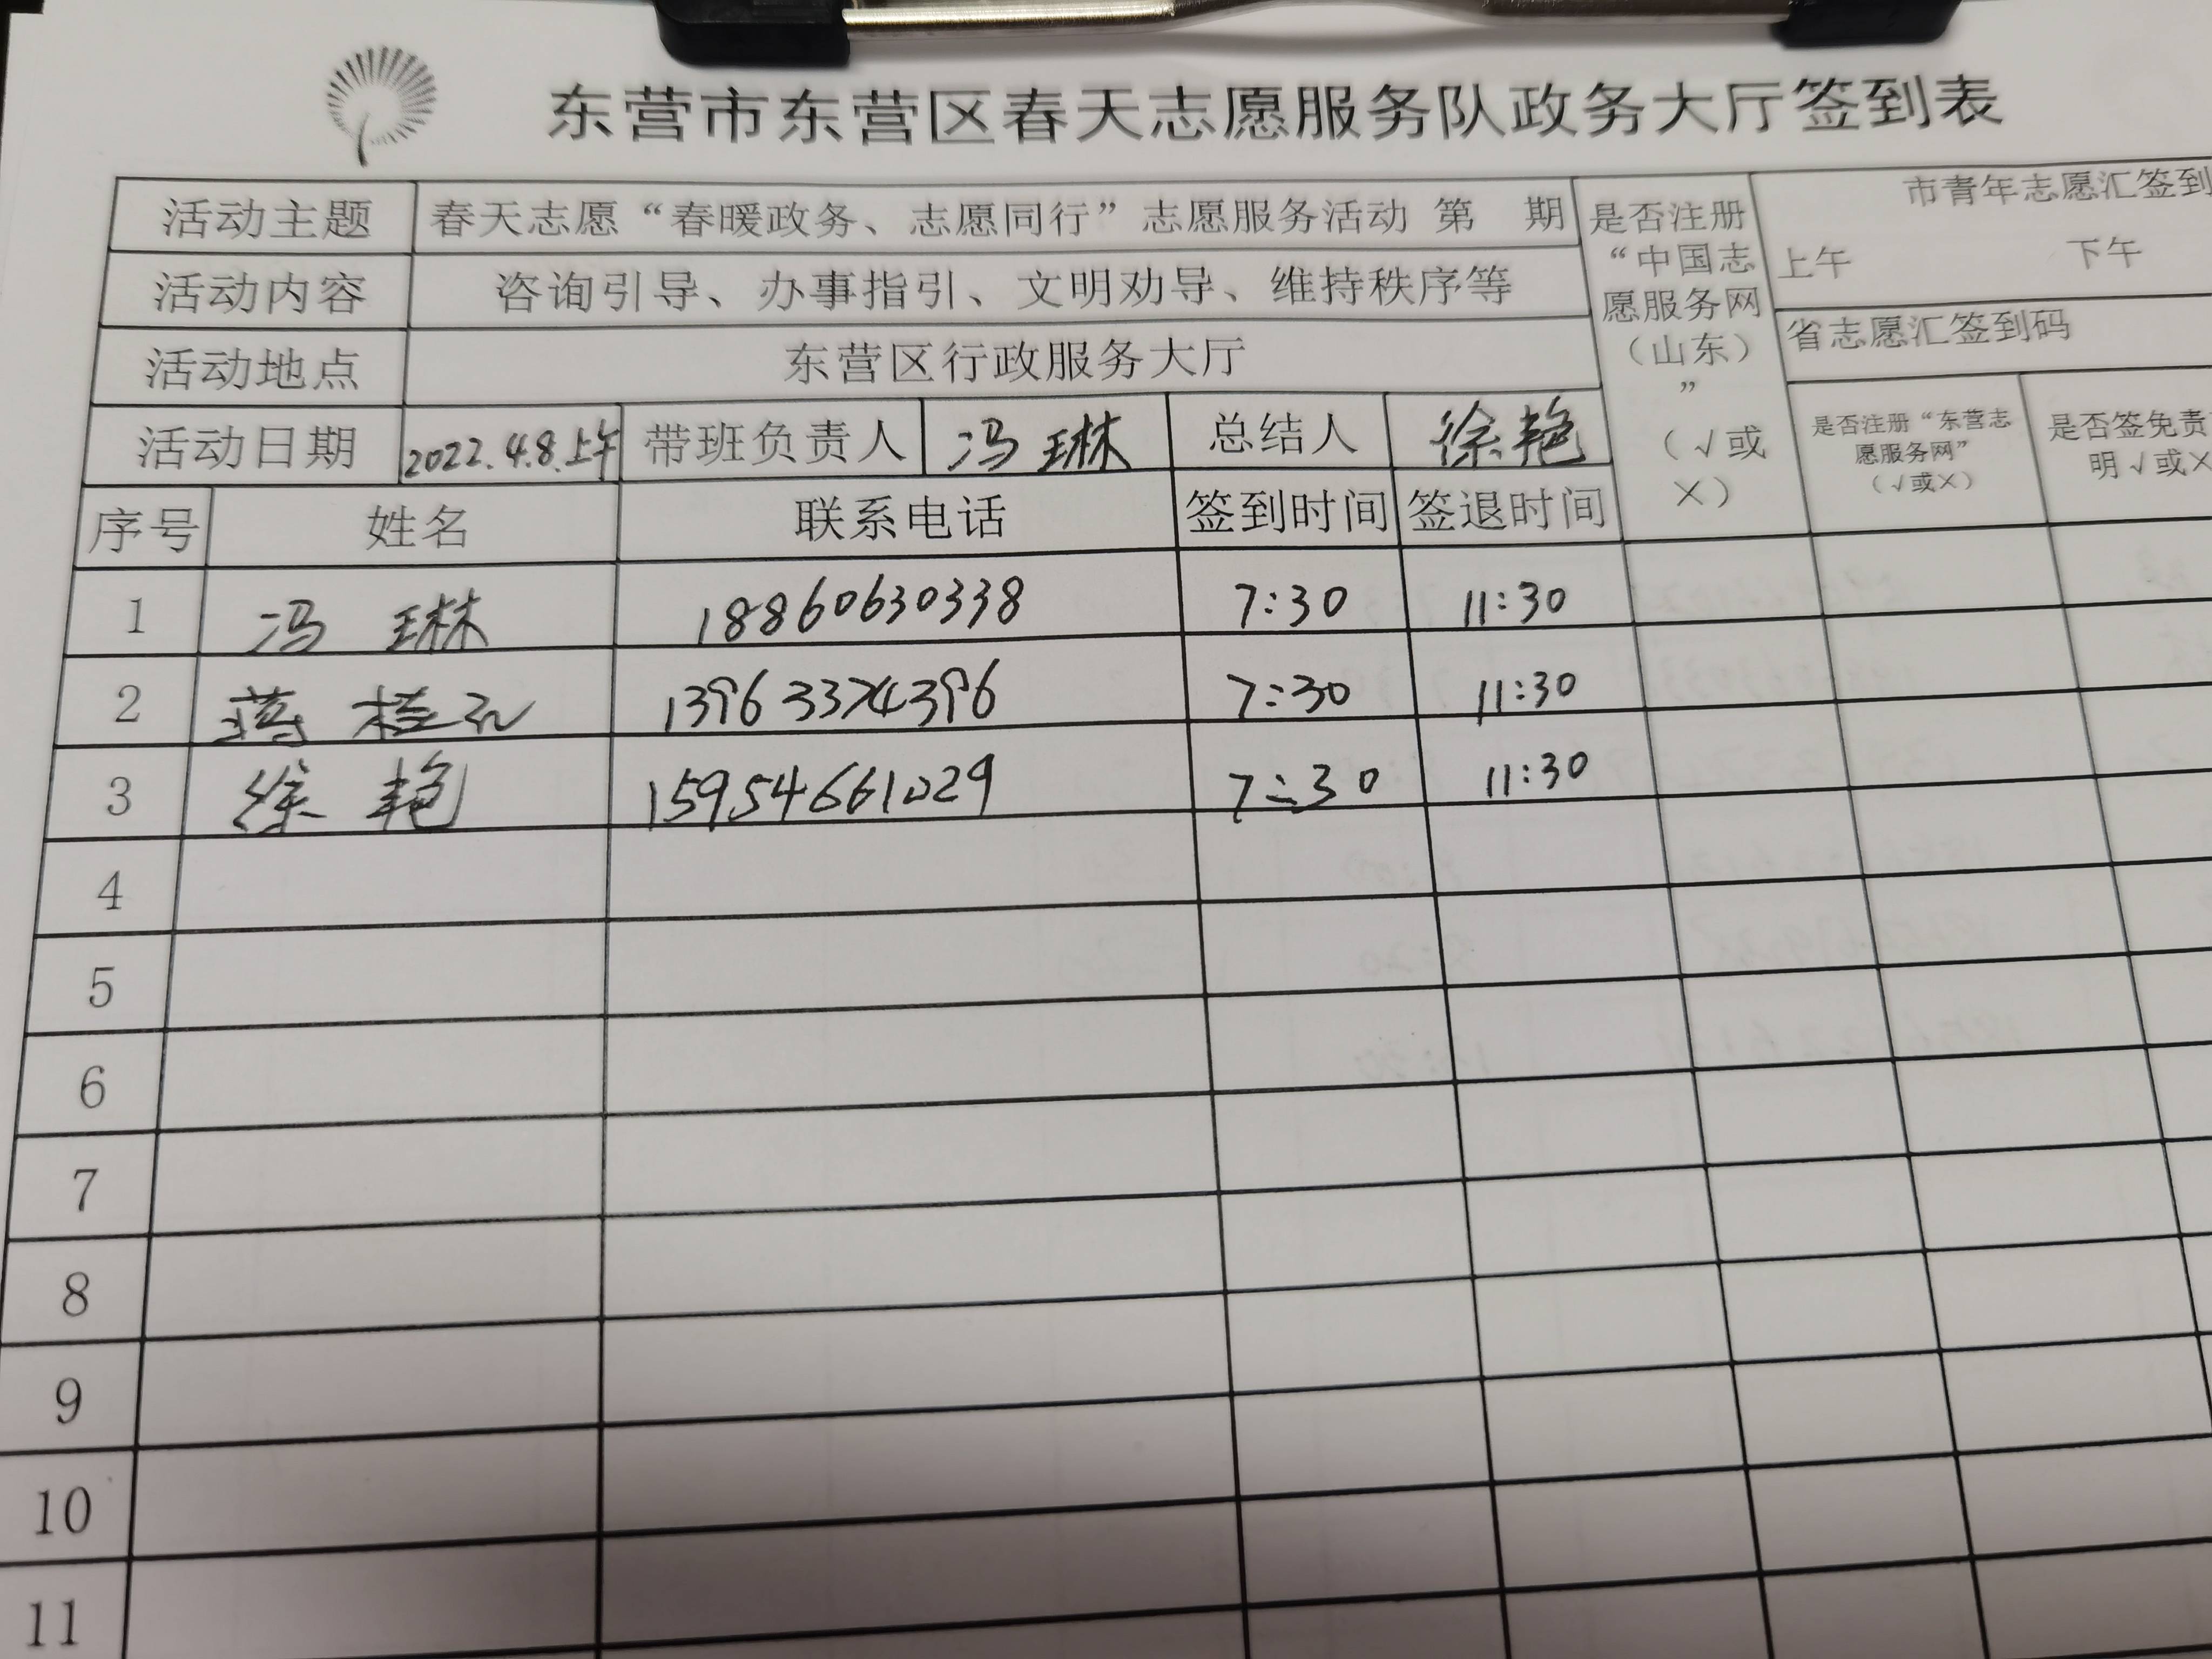 东营市东营区春天志愿服务队政务大厅签到表
活动主题 春天志愿“春暖政务、志愿同行”志愿服务活动 第 期
活动内容 咨询引导、办事指引、文明劝导、维持秩序等
活动地点 东营区行政服务大厅
活动日期 2022.4.8.上午 带班负责人 冯琳 总结人 徐艳
是否注册
“中国志
愿服务网
（山东）
”
（√或
×）
市青年志愿汇签到
上午 下午
省志愿汇签到码
是否注册“东营志
愿服务网”
（√或×）
是否签免责
明√或×
序号 姓名 联系电话 签到时间 签退时间
1 冯琳 18860630338 7:30 11:30
2 蒋桂 7:30 11:30
3 徐艳 15954661029 7:30 11:30
4
5
6
7
8
9
10
11